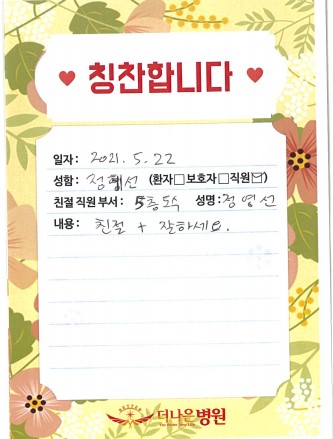 칭찬합니다
일자 : 2021. 5. 22
성함 : 정 선 (환자□보호자□직원☑)
친절 직원 부서 : 5층 도수 성명 : 정영선
내용 : 친절 + 잘하세요.
더나은병원